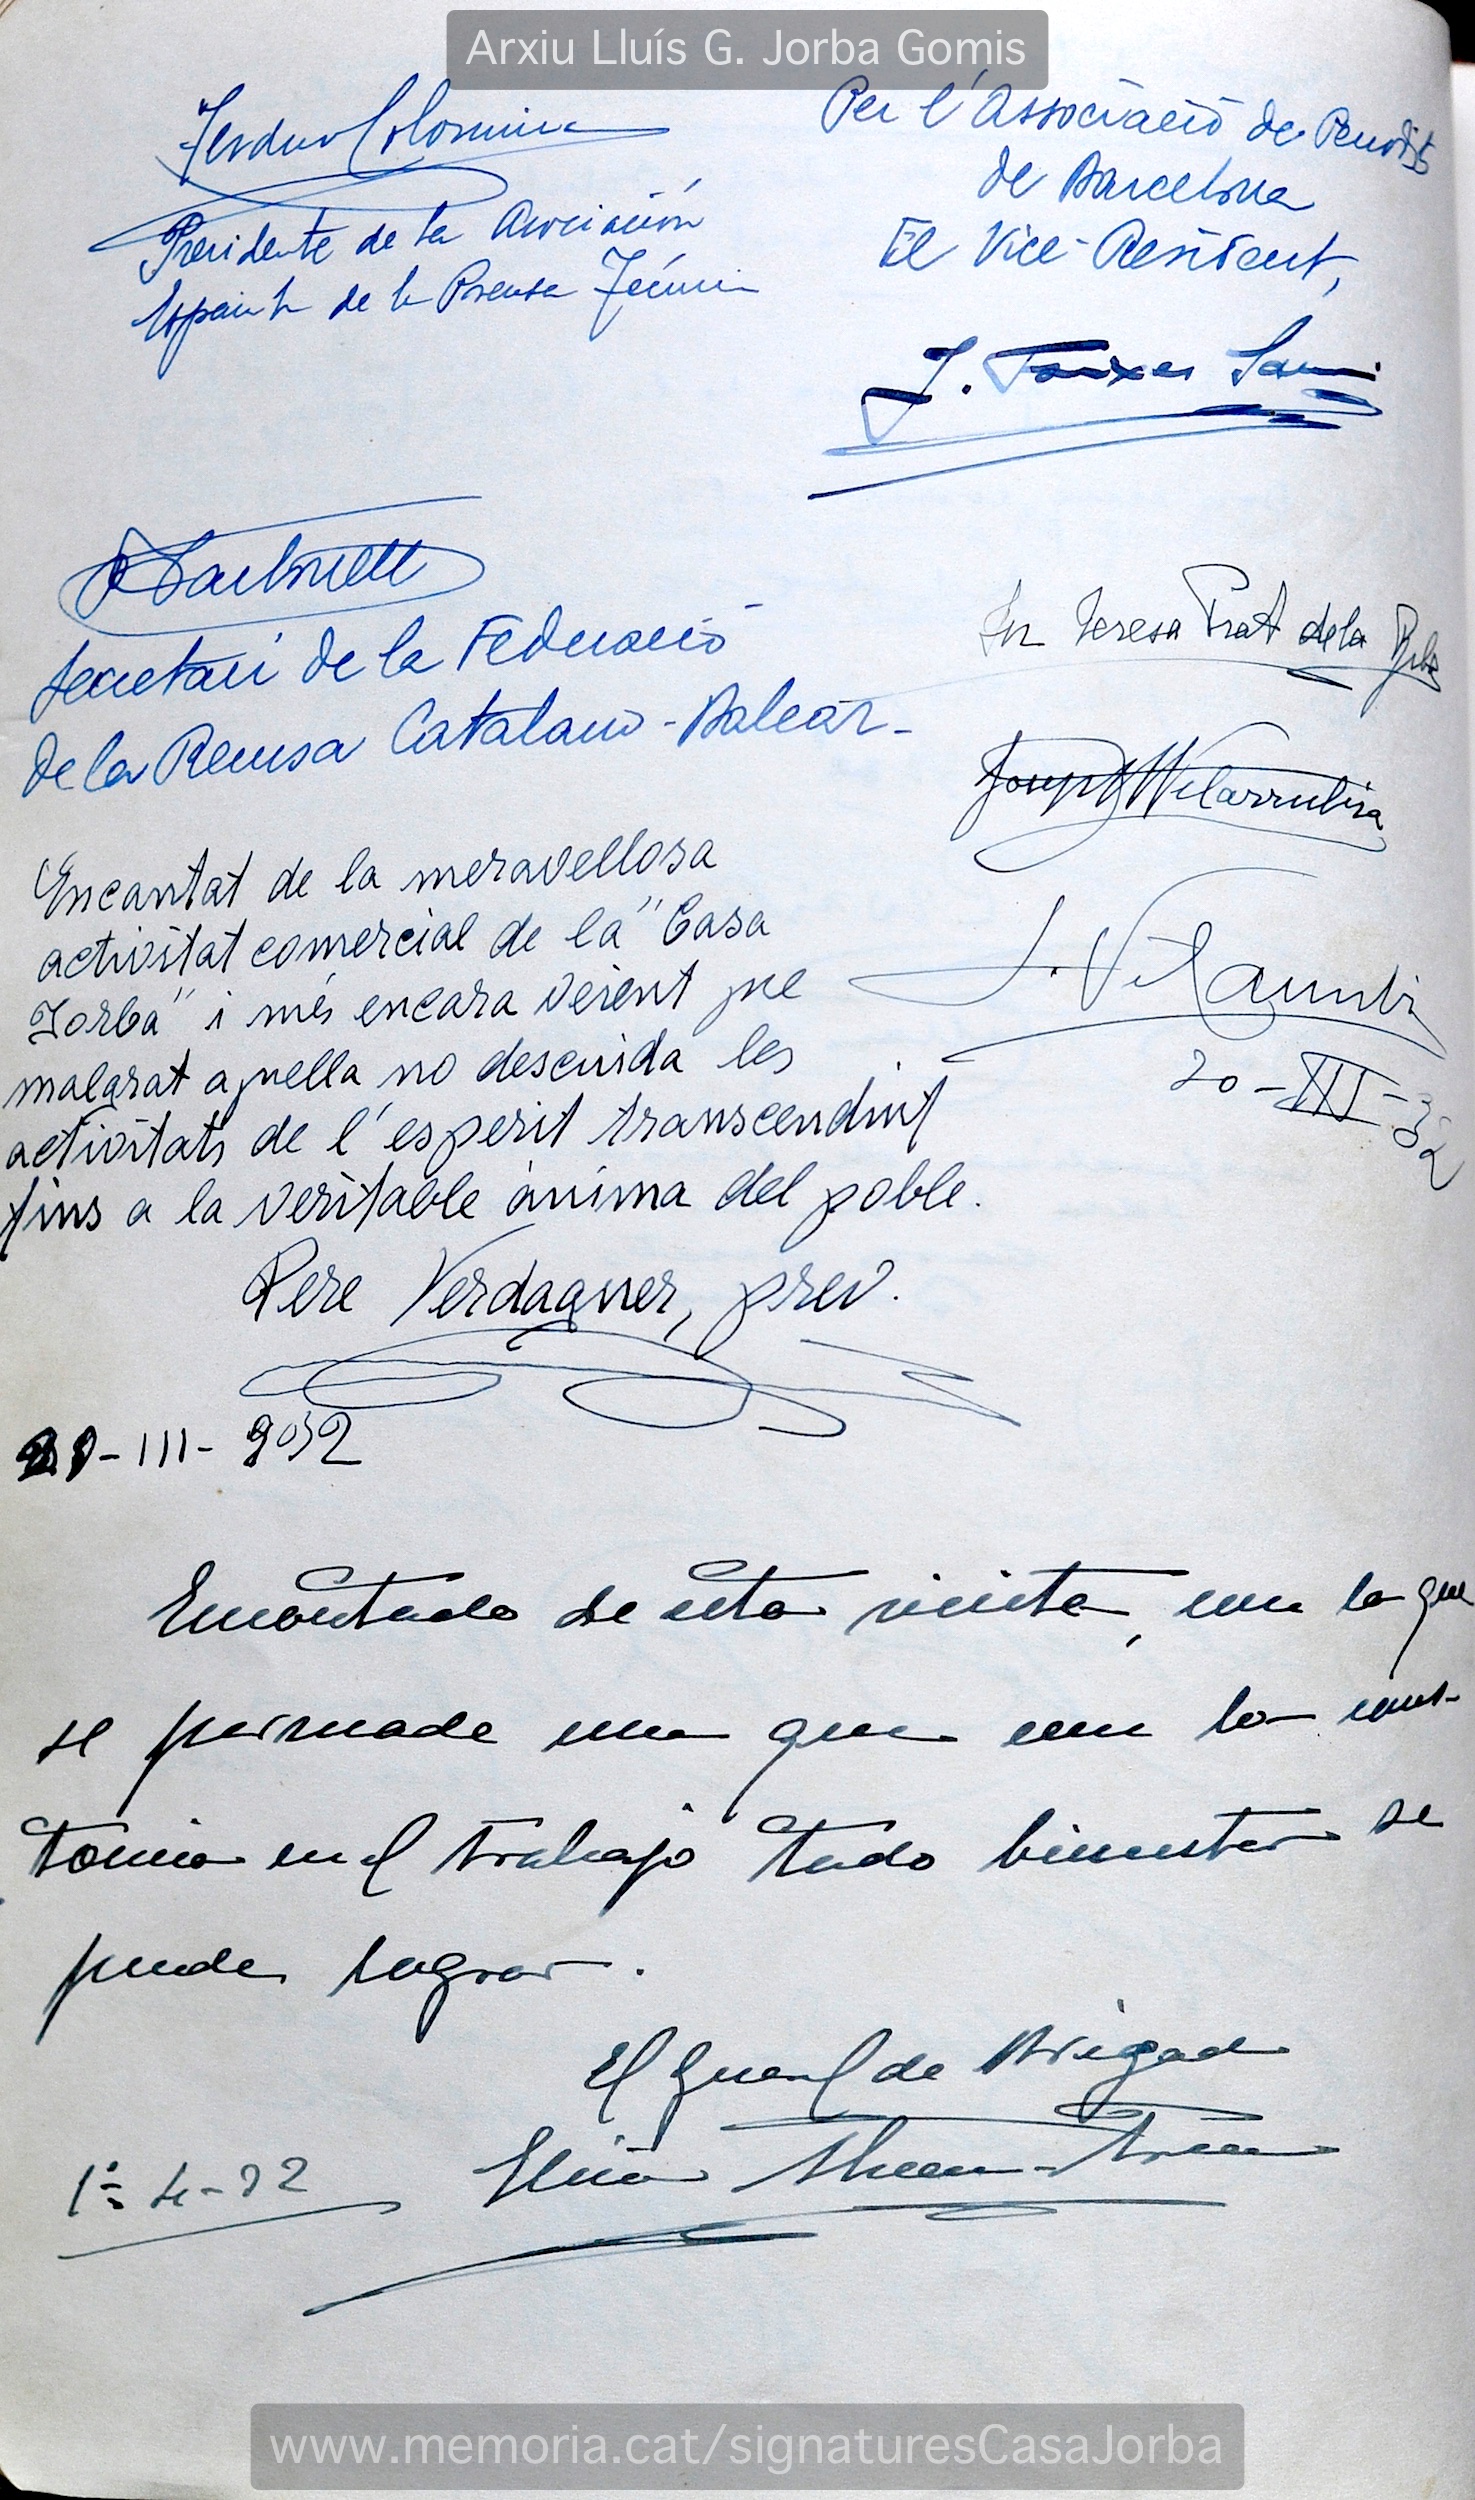 Arxiu Lluís G. Jorba Gomis
Presidente de la Asociación
Española de la Prensa Técnica
Per l'Associació de Periodistes
de Barcelona
El Vice-President,
J.
Secretari de la Federació
de la Premsa Catalano-Balear-
Teresa Prat de la Riba
Josep Vilarrubia
J.
20-III-32
Encantat de la meravellosa
activitat comercial de la "Casa
Jorba" i més encara veient que
malgrat aquella no descuida les
activitats de l'esperit transcendint
fins a la veritable ànima del poble.
Pere Verdaguer, prev.
-III-932
Encantado de esta visita, con la que
se persuade uno que con la cons-
tancia en el trabajo todo bienestar se
puede lograr.
El General de Brigada
1º-4-32
www.memoria.cat/signaturesCasaJorba